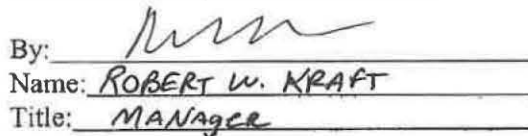 By:
Name: ROBERT W. KRAFT
Title: MANAGER